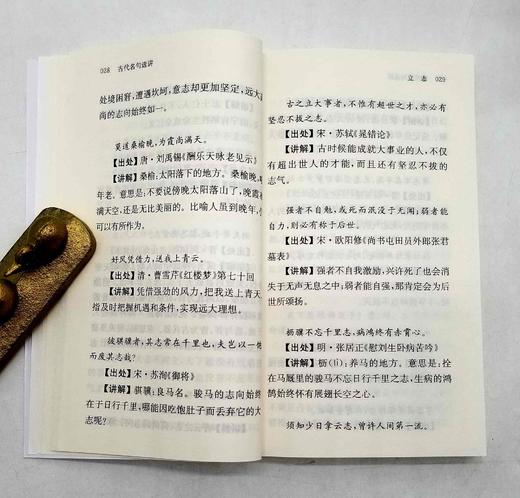 028 古代名句选讲
处境困窘,遭遇坎坷,意志却更加坚定,远大
尚的志向始终如一。
莫道桑榆晚,为霞尚满天。
【出处】唐·刘禹锡《酬乐天咏老见示》
【讲解】桑榆:太阳落下的地方。桑榆晚,
年老。意思是:不要说傍晚太阳落山了,晚霞
满天空,还是无比美丽的。比喻人虽到晚年,
可以有所作为。
好风凭借力,送我上青云。
【出处】清·曹雪芹《红楼梦》第七十回
【讲解】凭借强劲的风力,把我送上青天
指及时把握机遇和条件,实现远大理想。
彼骥骥者,其志常在千里也,夫岂以一
而废其志哉?
【出处】宋·苏洵《御将》
【讲解】骐骥:良马名。骏马的志向始终
在于日行千里,哪能因吃饱肚子而丢弃它的大
志呢?
立志 029
古之立大事者,不惟有超世之才,亦必有
坚忍不拔之志。
【出处】宋·苏轼《晁错论》
【讲解】古时候能成就大事业的人,不仅
有超出世人的才能,而且还有坚忍不拔的
志气。
强者不自勉,或死而泯没于无闻;弱者能
自力,则必有称于后世。
【出处】宋·欧阳修《尚书屯田员外郎张君
墓表》
【讲解】强者不自我激励,兴许死了也会消
失于无声无息之中;弱者能自强,那肯定会为后
世所颂扬。
枥骥不忘千里志,病鸿终有赤霄心。
【出处】明·张居正《慰刘生卧病苦吟》
【讲解】枥(lì):养马的地方。意思是:拴
在马厩里的骏马不忘日行千里之志,生病的鸿
鹄始终怀有展翅长空之心。
须知少日拿云志,曾许人间第一流。